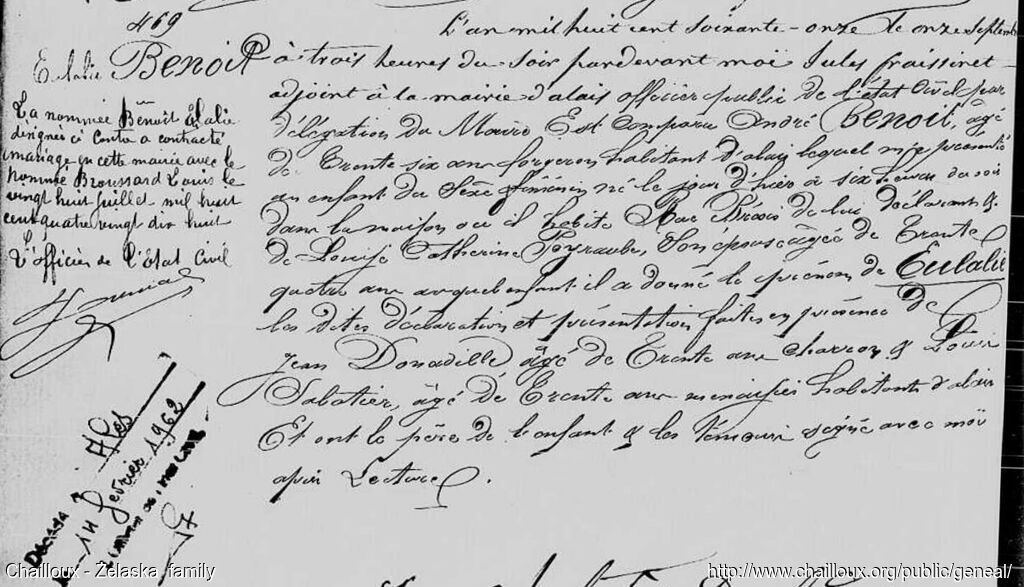 469
Eulalie Benoit
La nommée Benoit Eulalie
désignée ci contre a contracté
mariage en cette mairie avec le
nommé Broussard Louis le
vingt huit juillet mil huit
cent quatre vingt dix huit
L'officier de l'Etat Civil
L'an mil huit cent soixante-onze le onze septembre
à trois heures du soir pardevant moi Jules fraissinet
adjoint à la mairie d'alais officier public de l'état Civil par
délégation du Maire Est Comparu André Benoit, agé
de Trente six ans forgeron habitant d'alais lequel m'a présenté
un enfant du sexe féminin né le jour d'hier à six heures du soir
dans la maison ou il habite Rue de lui déclarant &
de Louise Catherine son épouse agée de Trente
quatre ans auquel enfant il a donné le prénom de Eulalie
les dites déclaration et présentation faites en présence de
Jean Donadille âgé de Trente ans charron & Louis
Sabatier, âgé de Trente ans menuisier habitants d'alais
Et ont le père de l'enfant & les témoins signé avec moi
après Lecture.
Décédé à Alès
14 février 1962
Chailloux - Zelaska family
http://www.chailloux.org/public/geneal/